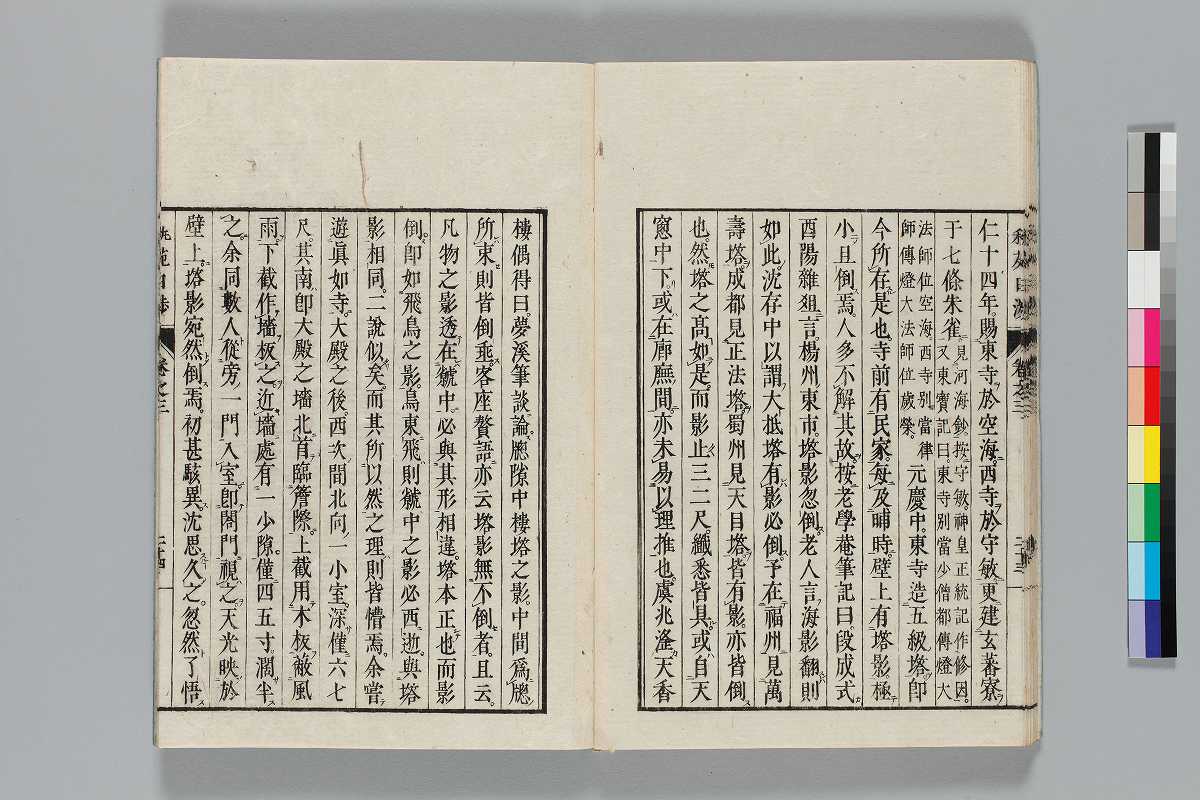 仁十四年。賜東寺於空海。西寺於守敏。更建玄蕃寮
于七條朱雀。見河海鈔。按守敏。神皇正統記作修因。又東寶記曰。東寺別當少僧都傳燈大
法師位空海。西寺別當律師傳燈大法師位歲榮。元慶中。東寺造五級塔。卽
今所存是也。寺前有民家。每及晡時。壁上有塔影極
小且倒焉。人多不解其故。按老學菴筆記曰。段成式
酉陽雜俎言。楊州東市塔影忽倒。老人言海影翻則
如此。沈存中以謂大抵塔有影必倒。予在福州見萬
壽塔。成都見正法塔。蜀州見天目塔。皆有影。亦皆倒
也。然塔之高如是。而影止三二尺。纖悉皆具。或自天
窻中下。或在廊廡間。亦未易以理推也。虞兆漋天香
樓偶得曰。夢溪筆談論。牕隙中樓塔之影。中間爲牕
所束。則皆倒垂。客座贅語亦云。塔影無不倒者。且云。
凡物之影。透在虢中。必與其形相違。塔本正也。而影
倒。卽如飛鳥之影。鳥東飛則虢中之影必西逝。與塔
影相同。二說似矣。而其所以然之理。則皆懵焉。余嘗
遊眞如寺。大殿之後。西次間北向一小室。深僅六七
尺。其南卽大殿之墻。北首臨簷際。上截用木板蔽風
雨。下截作墻。板之近墻處有一少隙。僅四五寸。濶半
之。余同數人從旁一門入室。卽閤門。視之。天光映於
壁上。塔影宛然倒焉。初甚駭異。沈思久之。忽然了悟
卷之三
二十四